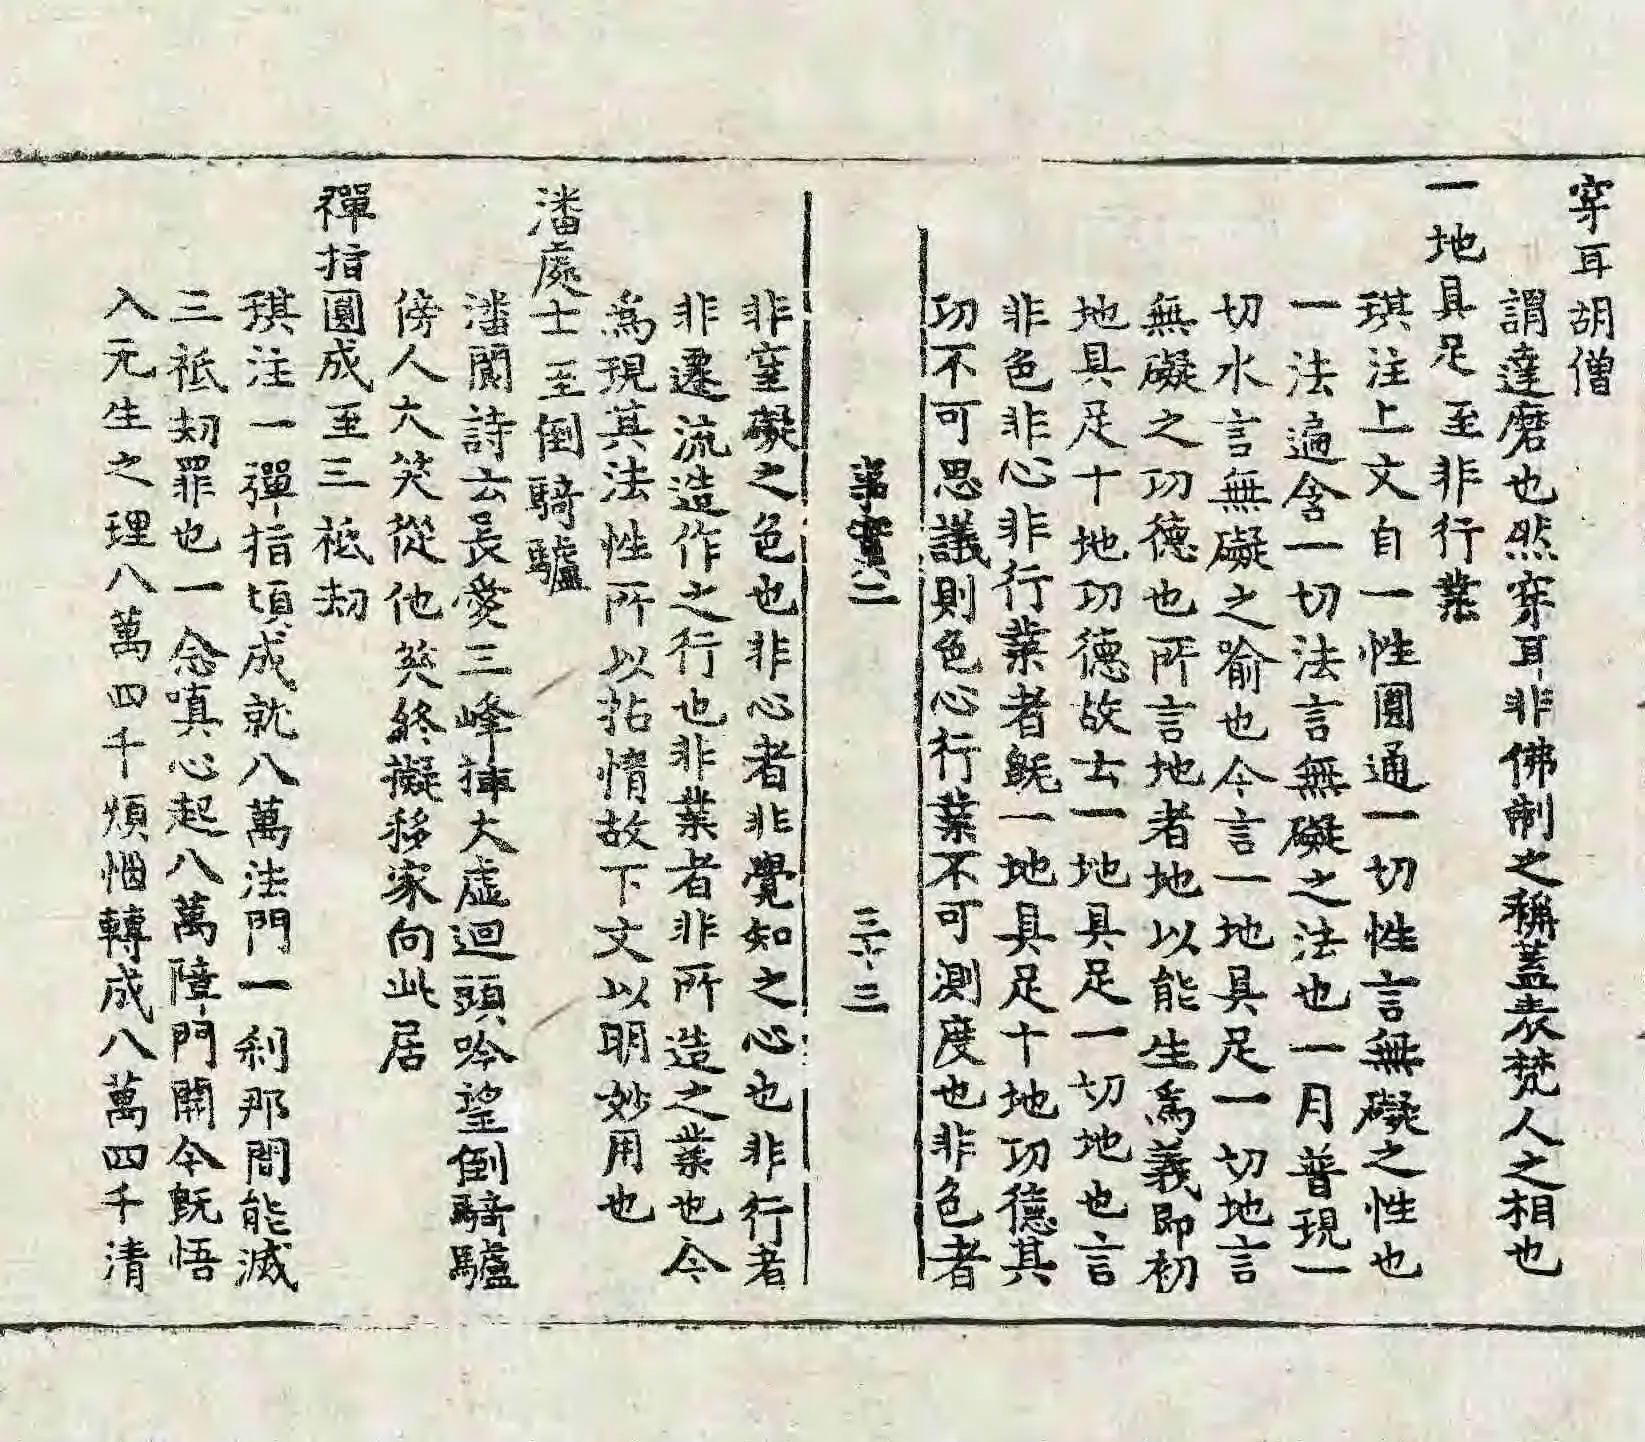 穿耳胡僧
謂達磨也然穿耳非佛制之稱蓋表梵人之相也
一地具足至非行業
琪注上文自一性圓通一切性言無礙之性也
一法遍含一切法言無礙之法也一月普現一
切水言無礙之喻也今言一地具足一切地言
無礙之功德也所言地者地以能生爲義即初
地具足十地功德故云一地具足一切地也言
非色非心非行業者旣一地具足十地功德其
功不可思議則色心行業不可測度也非色者
事實二
三十三
非窒礙之色也非心者非覺知之心也非行者
非遷流造作之行也非業者非所造之業也今
爲現其法性所以拈情故下文以明妙用也
潘處士至倒騎驢
潘閬詩云長愛三峰揷大虛迴頭吟望倒騎驢
傍人大笑從他笑終擬移家向此居
彈指圓成至三祇劫
琪注一彈指頃成就八萬法門一刹那間能滅
三祇劫罪也一念嗔心起八萬障門開今旣悟
入无生之理八萬四千煩惱轉成八萬四千清